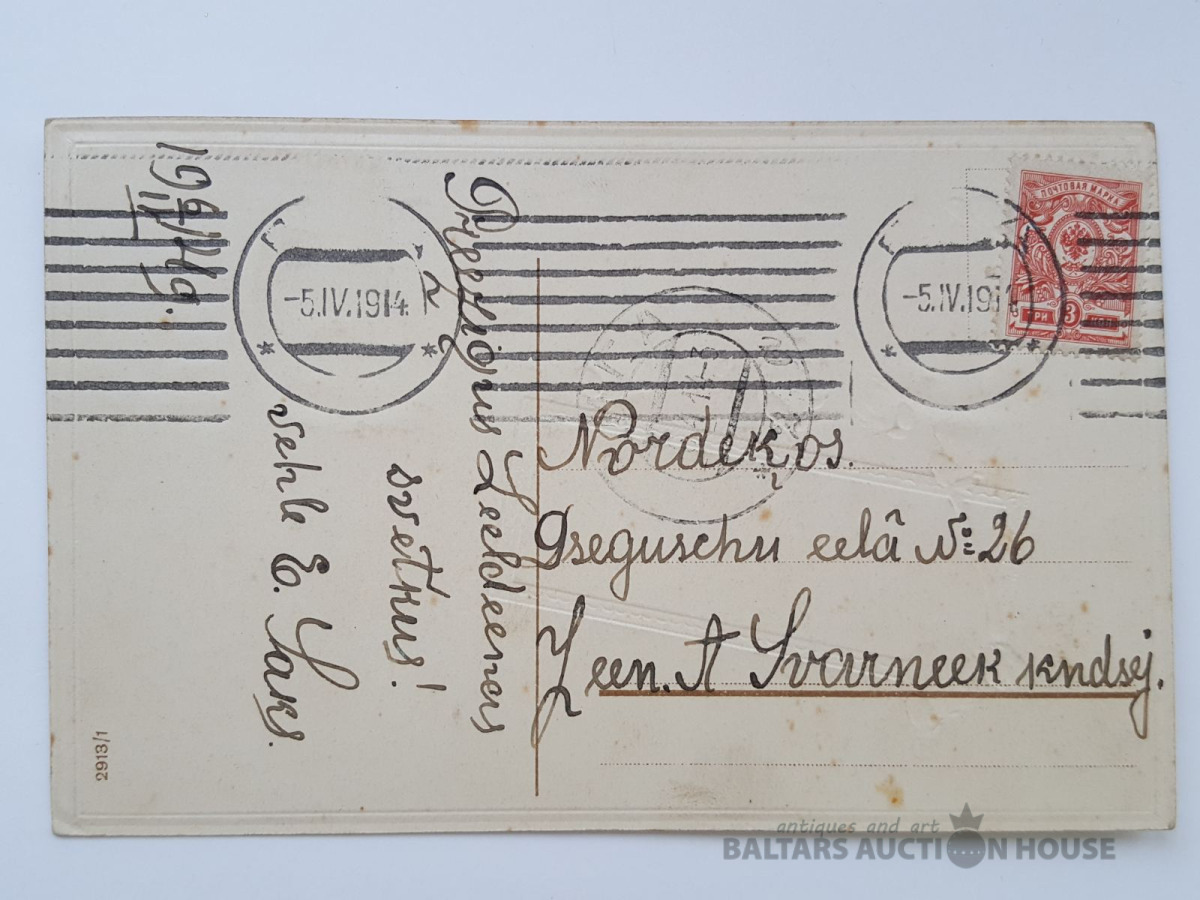 19 6/IV 14g.
Preezigus Leeldeenas
svetkus!
vehle E. Saks.
-5.IV.1914
-5.IV.191
ПОЧТОВАЯ МАРКА
ТРИ 3 КОП
Nordeķos.
Dseguschu eelâ №:26
Zeen. A Svarneek kndsej.
2913/1
antiques and art
BALTARS AUCTION HOUSE